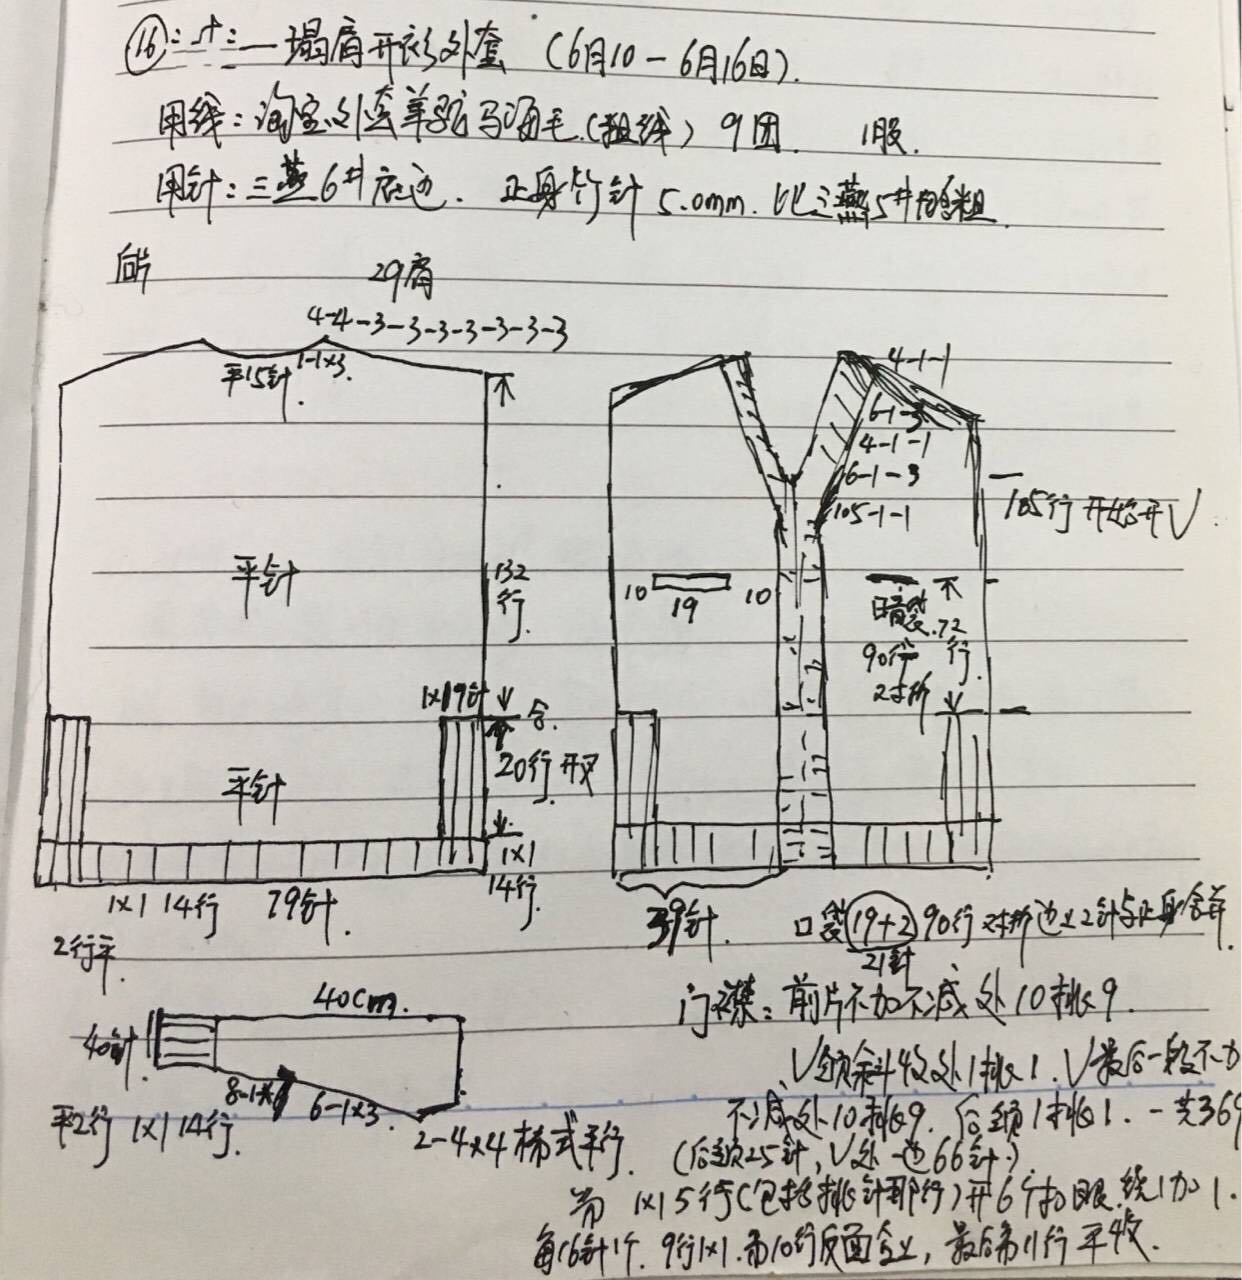 ⑯
塌肩开衫外套 (6月10-6月16日).
用线: 淘宝外套羊驼马海毛(粗线) 9团. 1股.
用针: 三燕6#底边. 正身竹针 5.0mm. 比三燕5#略粗
后片
29肩
4-4-3-3-3-3-3-3-3
平15针 1-1×3.
平针
132行.
1×1 9针
合.
20行开叉
平针
1×1
14行.
1×1 14行 79针.
4-1-1
6-1-3
4-1-1
6-1-3
105-1-1
105行开始开V.
10 19 10
暗袋.
90行
2寸折
72行.
39针.
口袋(19+2) 90行 对折 边上2针与正身合并
21针
2行平.
40cm.
40针
8-1×
6-1×3.
平2行 1×1 14行.
2-4×4 梯式平行.
门襟: 前片不加不减处10挑9.
V领斜收处1挑1. V最后一段不加
不减处10挑9. 后领1挑1. 一共369
(后领25针, V处一边66针)
第 1×1 5行(包括挑针那行)开6个扣眼. 绕1加1.
每16针1个. 9行1×1. 第10行反面全上, 最后第11行平收.